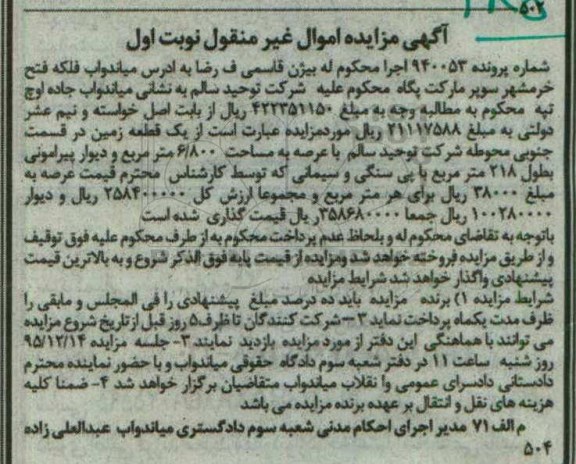 ۵۰۲
آگهی مزایده اموال غیر منقول نوبت اول
شماره پرونده ۹۴۰۰۵۳ اجرا محکوم له بیژن قاسمی ف رضا به ادرس میاندواب فلکه فتح
خرمشهر سوپر مارکت پگاه محکوم علیه شرکت توحید سالم به نشانی میاندواب جاده اوچ
تپه محکوم به مطالبه وجه به مبلغ ۴۲۲۳۵۱۱۵۰ ریال از بابت اصل خواسته و نیم عشر
دولتی به مبلغ ۲۱۱۱۷۵۸۸ ریال موردمزایده عبارت است از یک قطعه زمین در قسمت
جنوبی محوطه شرکت توحید سالم با عرصه به مساحت ۶/۸۰۰ متر مربع و دیوار پیرامونی
بطول ۲۱۸ متر مربع با پی سنگی و سیمانی که توسط کارشناس محترم قیمت عرصه به
مبلغ ۳۸۰۰۰ ریال برای هر متر مربع و مجموعا ارزش کل ۲۵۸۴۰۰۰۰۰ ریال و دیوار
۱۰۰۲۸۰۰۰۰ ریال جمعا ۳۵۸۶۸۰۰۰۰ ریال قیمت گذاری شده است
باتوجه به تقاضای محکوم له و بلحاظ عدم پرداخت محکوم به از طرف محکوم علیه فوق توقیف
و از طریق مزایده فروخته خواهد شد ومزایده از قیمت پایه فوق الذکر شروع و به بالاترین قیمت
پیشنهادی واگذار خواهد شد شرایط مزایده
شرایط مزایده ۱) برنده مزایده باید ده درصد مبلغ پیشنهادی را فی المجلس و مابقی را
ظرف مدت یکماه پرداخت نماید ۲– شرکت کنندگان تا ظرف۵ روز قبل ازتاریخ شروع مزایده
می توانند با هماهنگی این دفتر از مورد مزایده بازدید نمایند ۳- جلسه مزایده ۹۵/۱۲/۱۴
روز شنبه ساعت ۱۱ در دفتر شعبه سوم دادگاه حقوقی میاندواب و با حضور نماینده محترم
دادستانی دادسرای عمومی وا نقلاب میاندواب متقاضیان برگزار خواهد شد ۴- ضمنا کلیه
هزینه های نقل و انتقال بر عهده برنده مزایده می باشد
م الف ۷۱ مدیر اجرای احکام مدنی شعبه سوم دادگستری میاندواب عبدالعلی زاده
۵۰۴